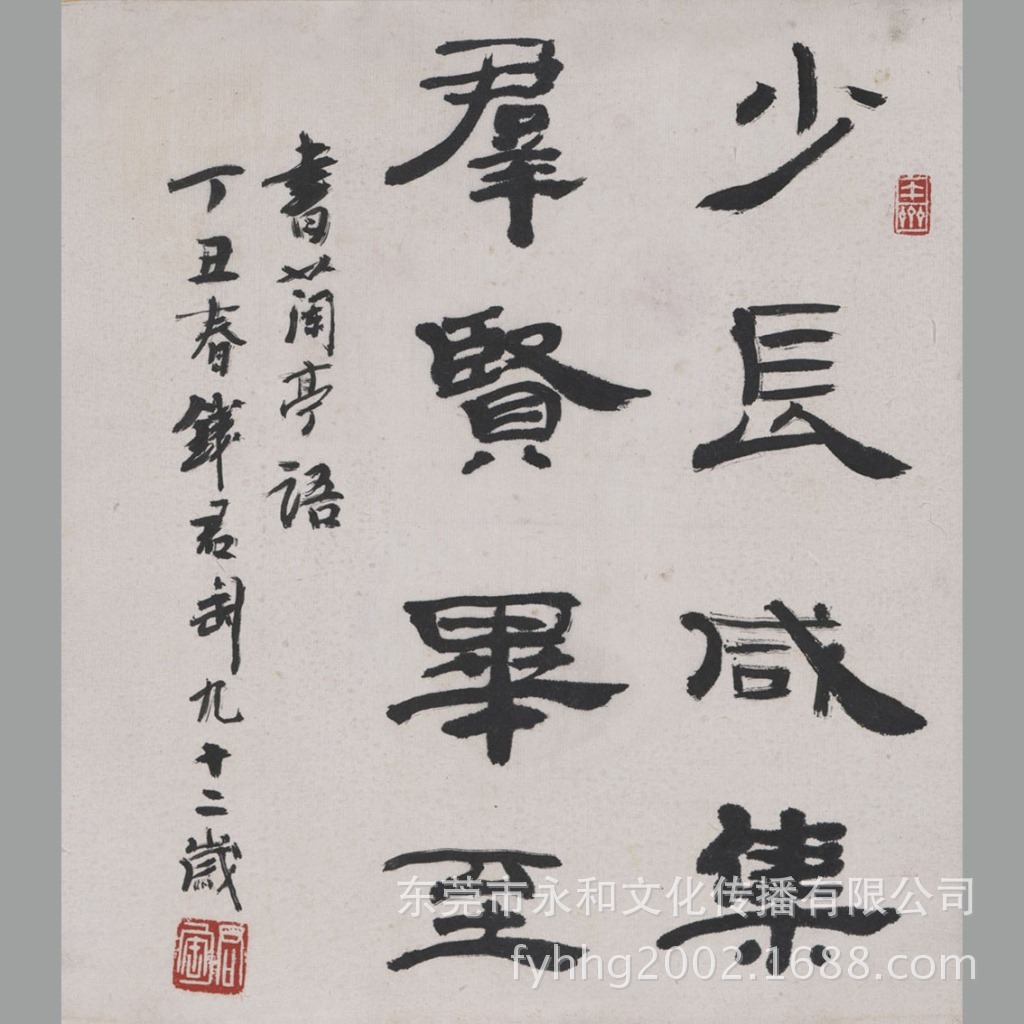 少長咸集
羣賢畢至
書蘭亭語
丁丑春錢君匋九十二歲
东莞市永和文化传播有限公司
fyhhg2002.1688.com